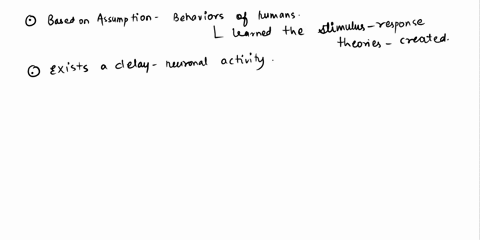 Based on Assumption - Behaviors of humans.
learned the stimulus - response
theories - created.
Exists a delay - neuronal activity.